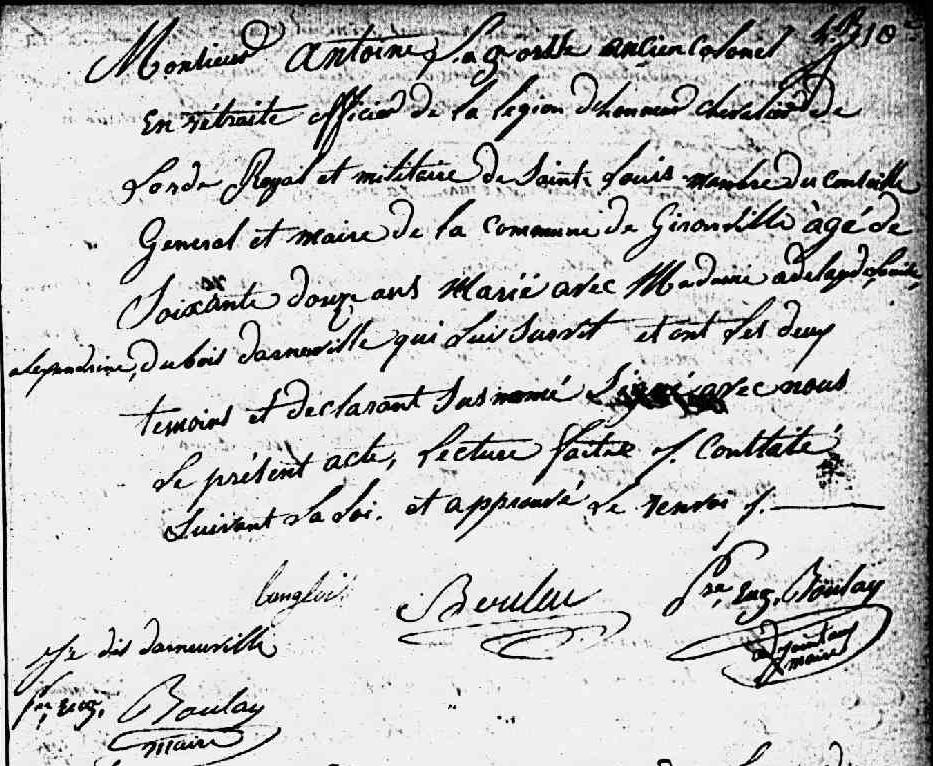 Monsieur Antoine Lagorsse ancien Colonel
En rétraite officier de la legion dhonneur chevalier de
Lorde Royal et militaire de Saint Louis membre du Conseille
General et maire de la Commune de Gironville âgé de
Soixante douze ans Marié avec Madame adelayde, Louise,
alexandrine, dubois darneuville qui lui survit et ont les deux
temoins et declarant susnomé Signé avec nous
Le présent acte, lecture faitte /. Conttaté
Suivant La Loi. et approuvé Le renvoi /.
Langlois Boulay
Pre, Eug, Boulay
adjoint au
maire
dis darneuville
Pre, Eug, Boulay
maire